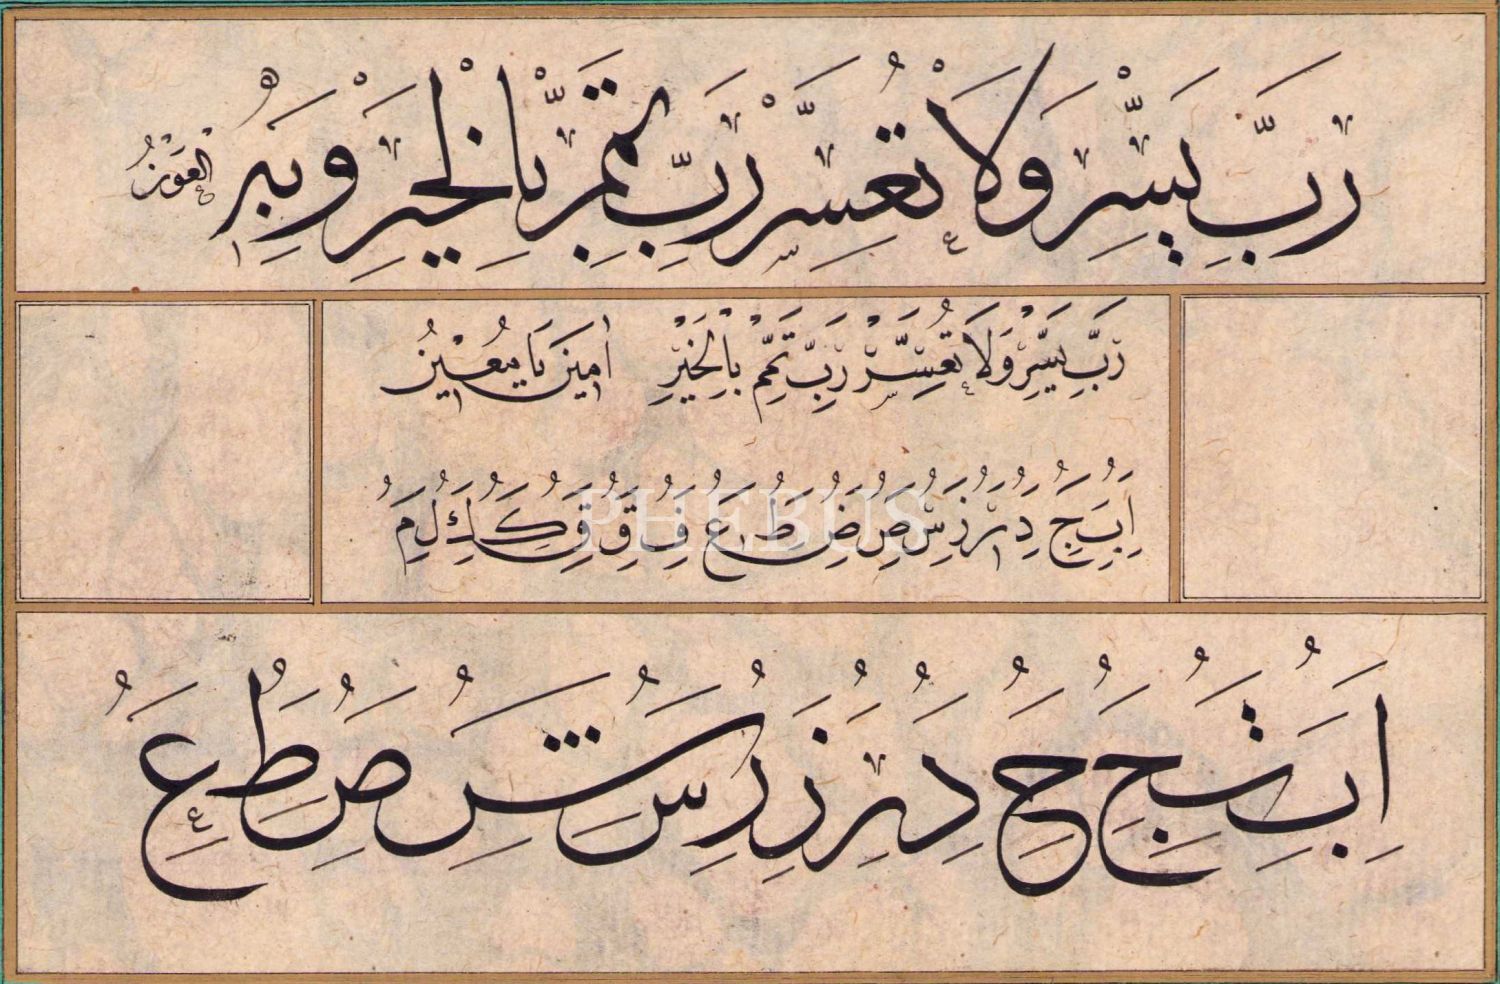 رَبِّ يَسِّرْ وَلَا تُعَسِّرْ رَبِّ تَمِّمْ بِالْخَيْرِ وَبِهِ الْعَوْنُ
رَبِّ يَسِّرْ وَلَا تُعَسِّرْ رَبِّ تَمِّمْ بِالْخَيْرِ اٰمِينَ يَا مُعِينُ
ا ب ج د ر ز س ص ض ط ع ف ق ق ك ك ل م
PHEBUS
ا ب ت ج ح د ر ز ر س ش ص ط ع